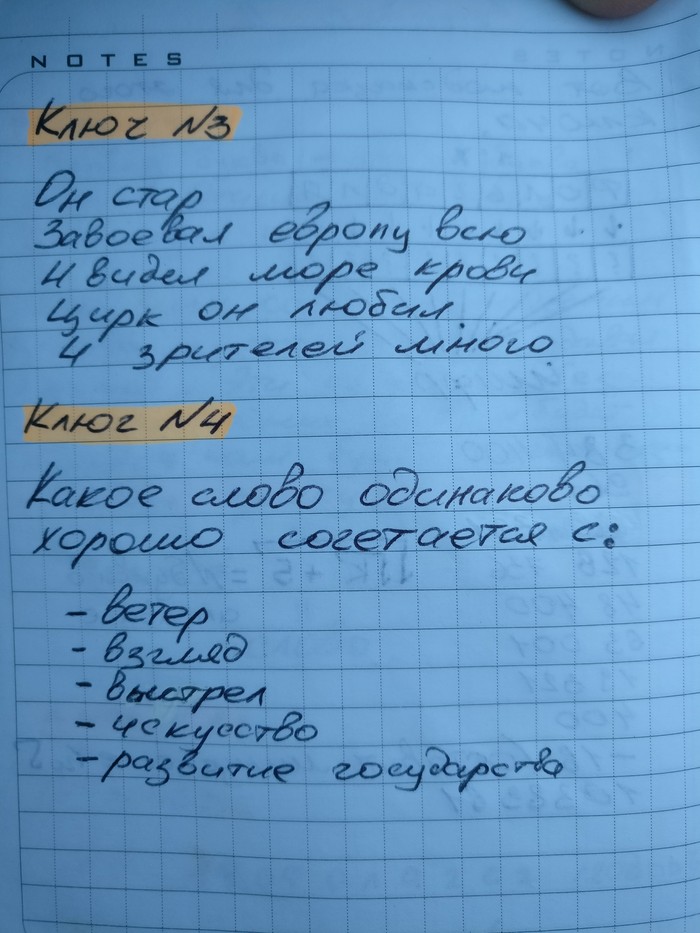 NOTES
Ключ №3
Он стар
Завоевал европу всю
И видел море крови
Цирк он любил
И зрителей много
Ключ №4
Какое слово одинаково
хорошо сочетается с:
- ветер
- взгляд
- выстрел
- искусство
- развитие государства